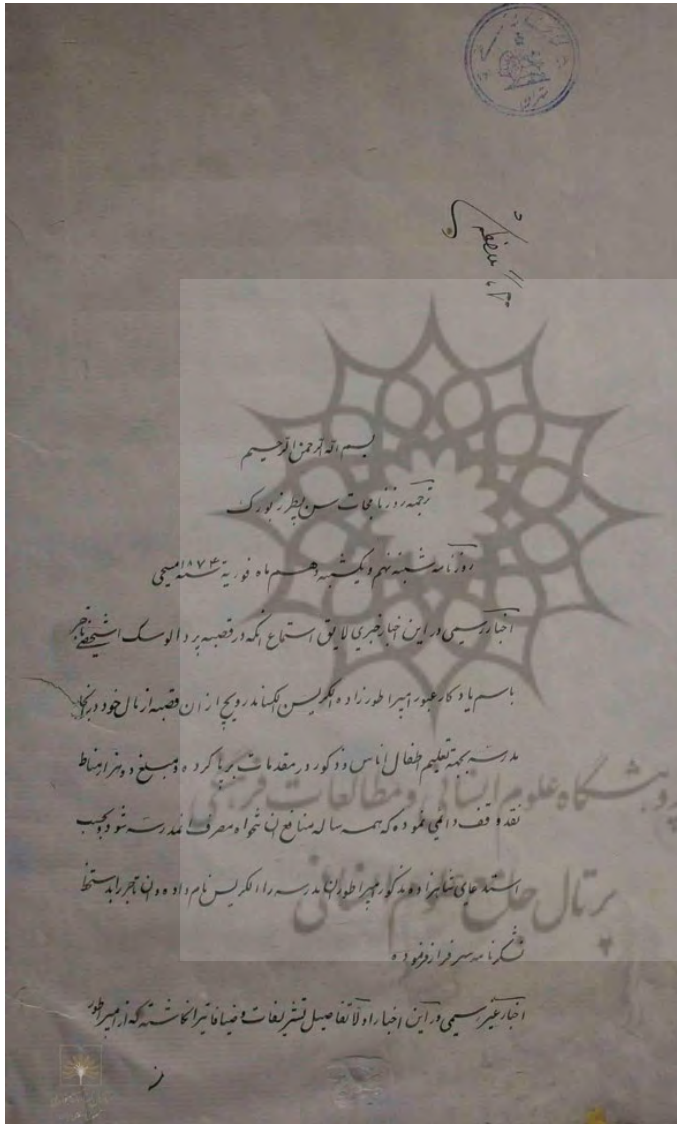 بسم الله الرحمن الرحیم
ترجمه روزنامجات سن پطرزبورک
روزنامه شنبه نهم و یکشنبه دهم ماه فوریة سنه ۱۸۷۴ مسیحی
اخبار رسمی در این اخبار خبری لایق استماع انکه در قصبه شخصی تاجر
باسم یادکار عبور امپراطورزاده الکسیس الکساندرویچ از ان قصبه از مال خود در انجا
مدرسه بجهة تعلیم اطفال اناس و ذکور در مقدمات برپا کرده و مبلغ دو هزار مناط
نقد وقف دائمی نموده که همه ساله منافع ان تنخواه مصرف انمدرسه شود و بحسب
استدعای شاهزاده مذکور امپراطور ان مدرسه را الکسیس نام داده و ان تاجر را بدستخط
تشکرنامه سرافراز فرموده
اخبار غیر رسمی در این اخبار اولا تفاصیل تشریفات و ضیافاتیرا نکاشته که از امپراطور
پژوهشگاه علوم انسانی و مطالعات فرهنگی
پرتال جامع علوم انسانی